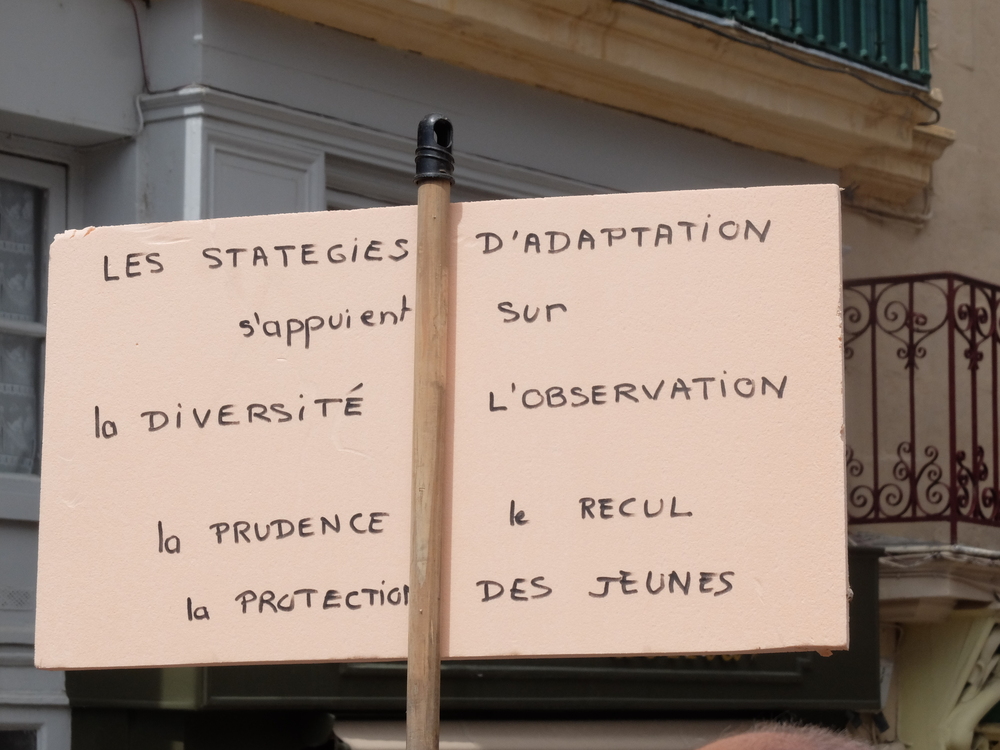 LES STATEGIES D'ADAPTATION
s'appuient sur
la DIVERSITÉ L'OBSERVATION
la PRUDENCE le RECUL
la PROTECTION DES JEUNES